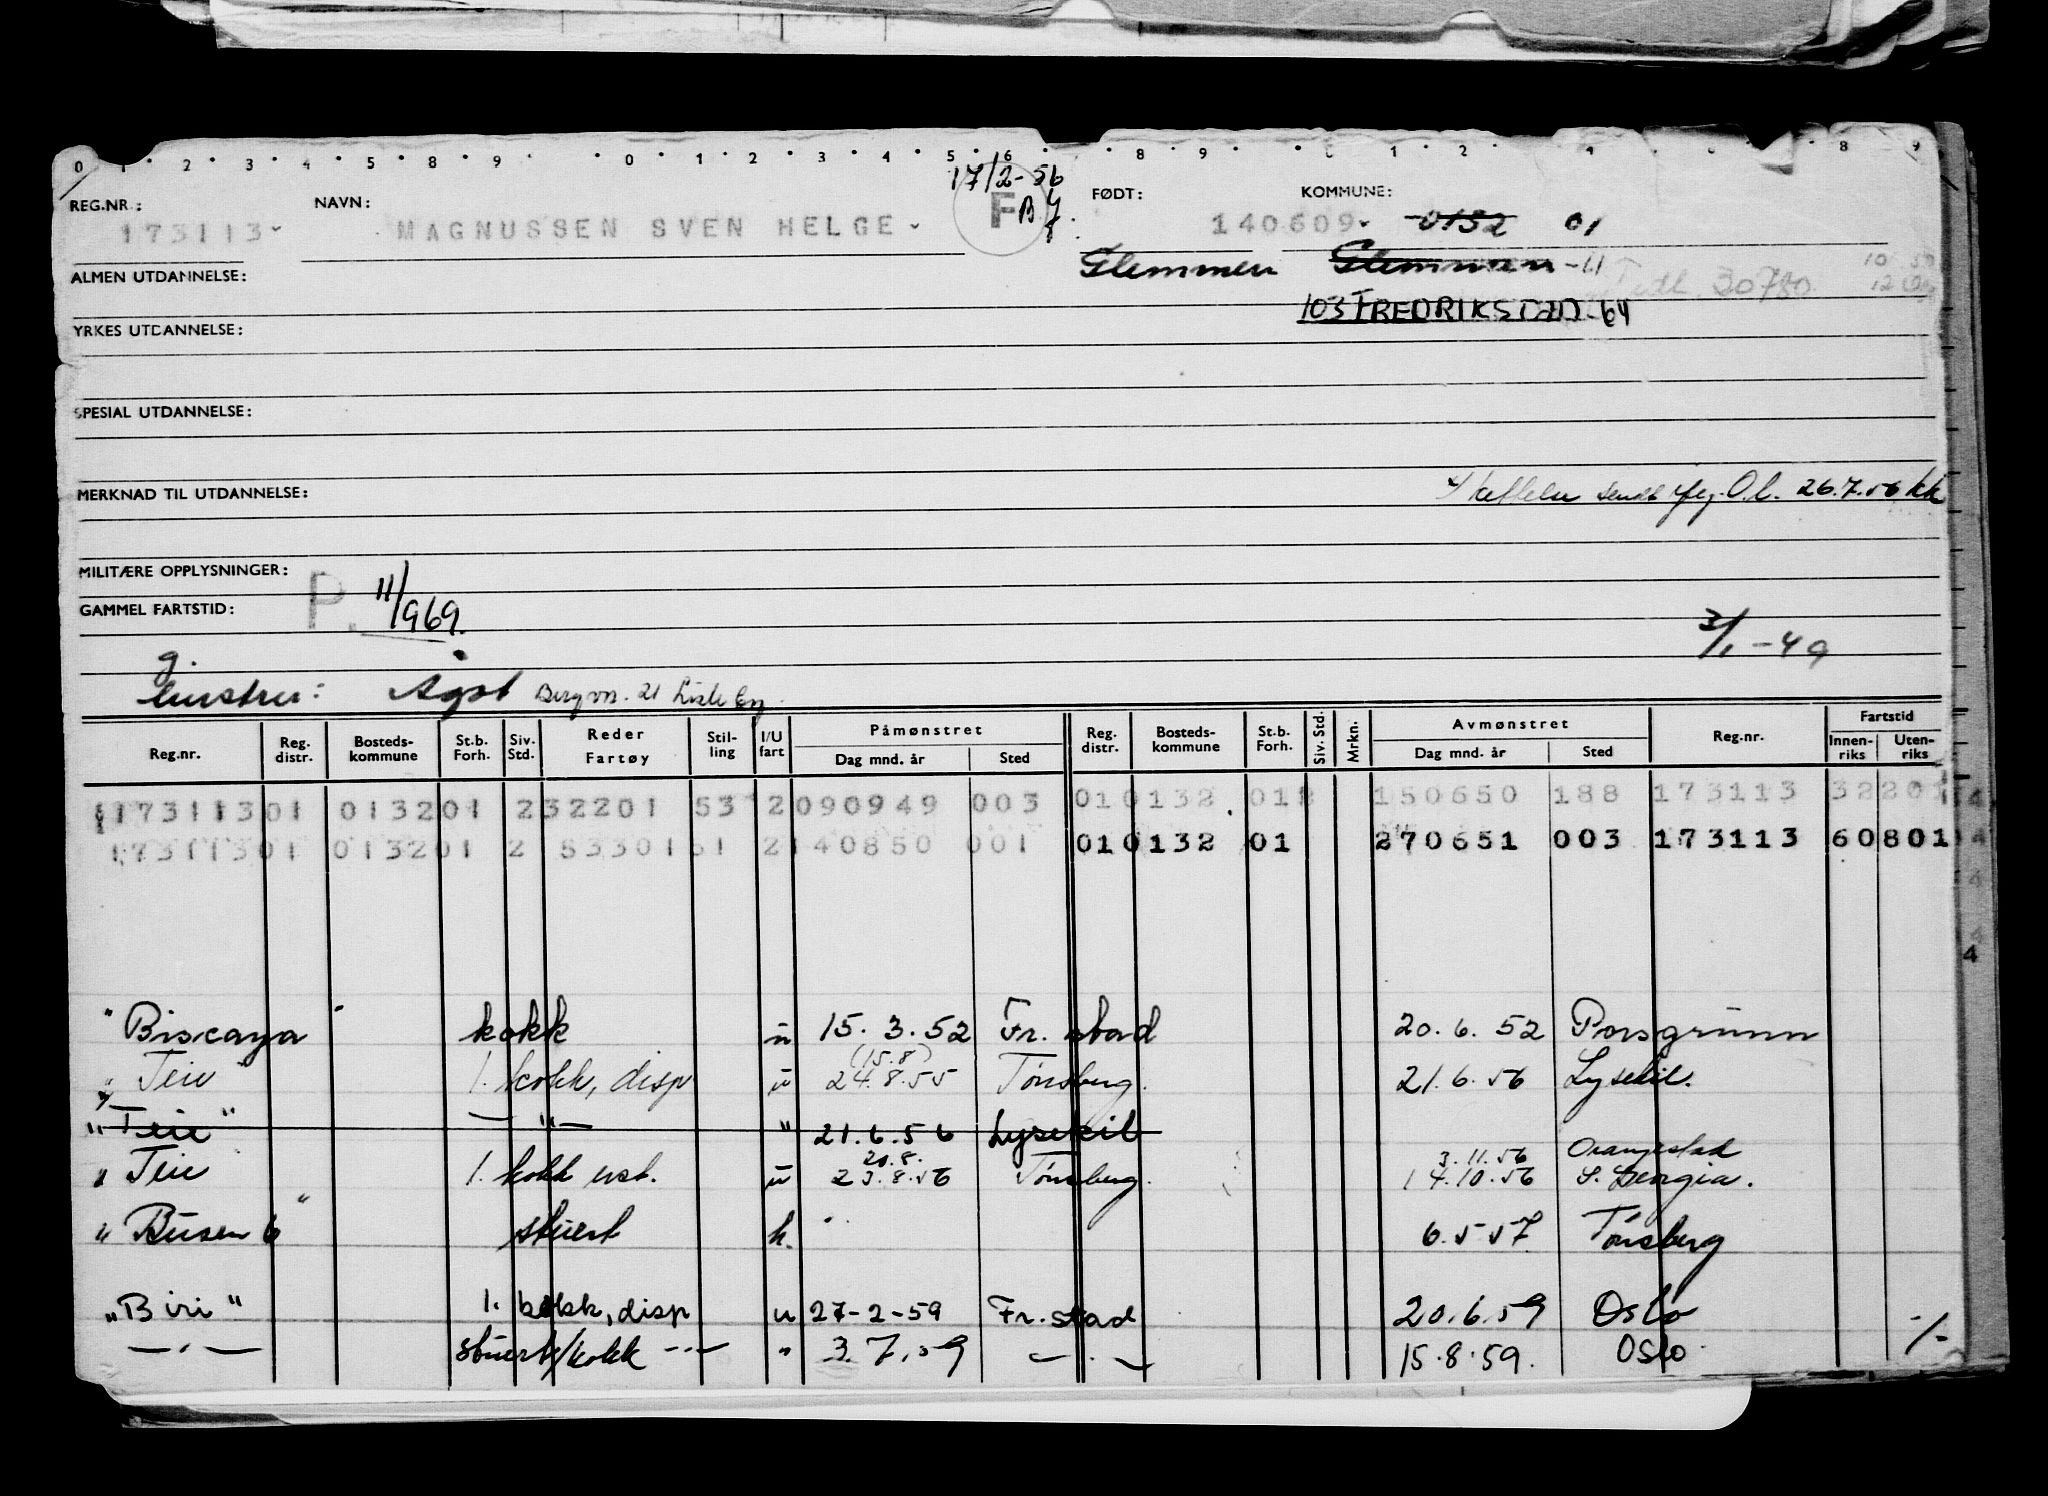 0 1 2 3 4 5 8 9 0 1 2 3 4 5 6 8 9 1 2 4 8 9
17/2-56
REG.NR: NAVN: F B FØDT: KOMMUNE:
173113- MAGNUSSEN SVEN HELGE- 140609- 0132 01
ALMEN UTDANNELSE: Glemmen Glemmen 30780
103 FREDRIKSTAD-64
YRKES UTDANNELSE:
SPESIAL UTDANNELSE:
MERKNAD TIL UTDANNELSE: sendt 26.7.56 kk
MILITÆRE OPPLYSNINGER:
GAMMEL FARTSTID: P. 11/969.
3/1-49
g.
hustru: Ågot Bergvn. 21 Lisleby
Reg.nr. Reg. distr. Bosteds-kommune St.b. Forh. Siv. Std. Reder Fartøy Stil-ling I/U fart Påmønstret Dag mnd. år Sted Reg. distr. Bosteds-kommune St.b. Forh. Siv. Std. Mrkn. Avmønstret Dag mnd. år Sted Reg.nr. Fartstid Innen-riks Uten-riks
173113 01 0132 01 2 32201 53 2 090949 003 01 0132 01 2 150650 188 173113 32201
173113 01 0132 01 2 53301 51 2 140850 001 01 0132 01 270651 003 173113 60801
4
" Biscaya " kokk u 15. 3. 52 Fr. stad 20. 6. 52 Porsgrunn
(15.8)
" Teie " 1. kokk, disp u 24.8.55 Tønsberg. 21.6.56 Lysekil.
" Teie " — " — " 21.6.56 Lysekil
20.8. 3.11.56 Oranjestad
" Teie 1. kokk u 23.8.56 Tønsberg. 14.10.56 S. Georgia.
" Busen 6 " stuert h. 6.5.57 Tønsberg
" Biri " 1. kokk, disp u 27-2-59 Fr. stad 20.6.59 Oslo
— " — stuert/kokk --- " 3.7.59 — " — 15.8.59. Oslo -/-